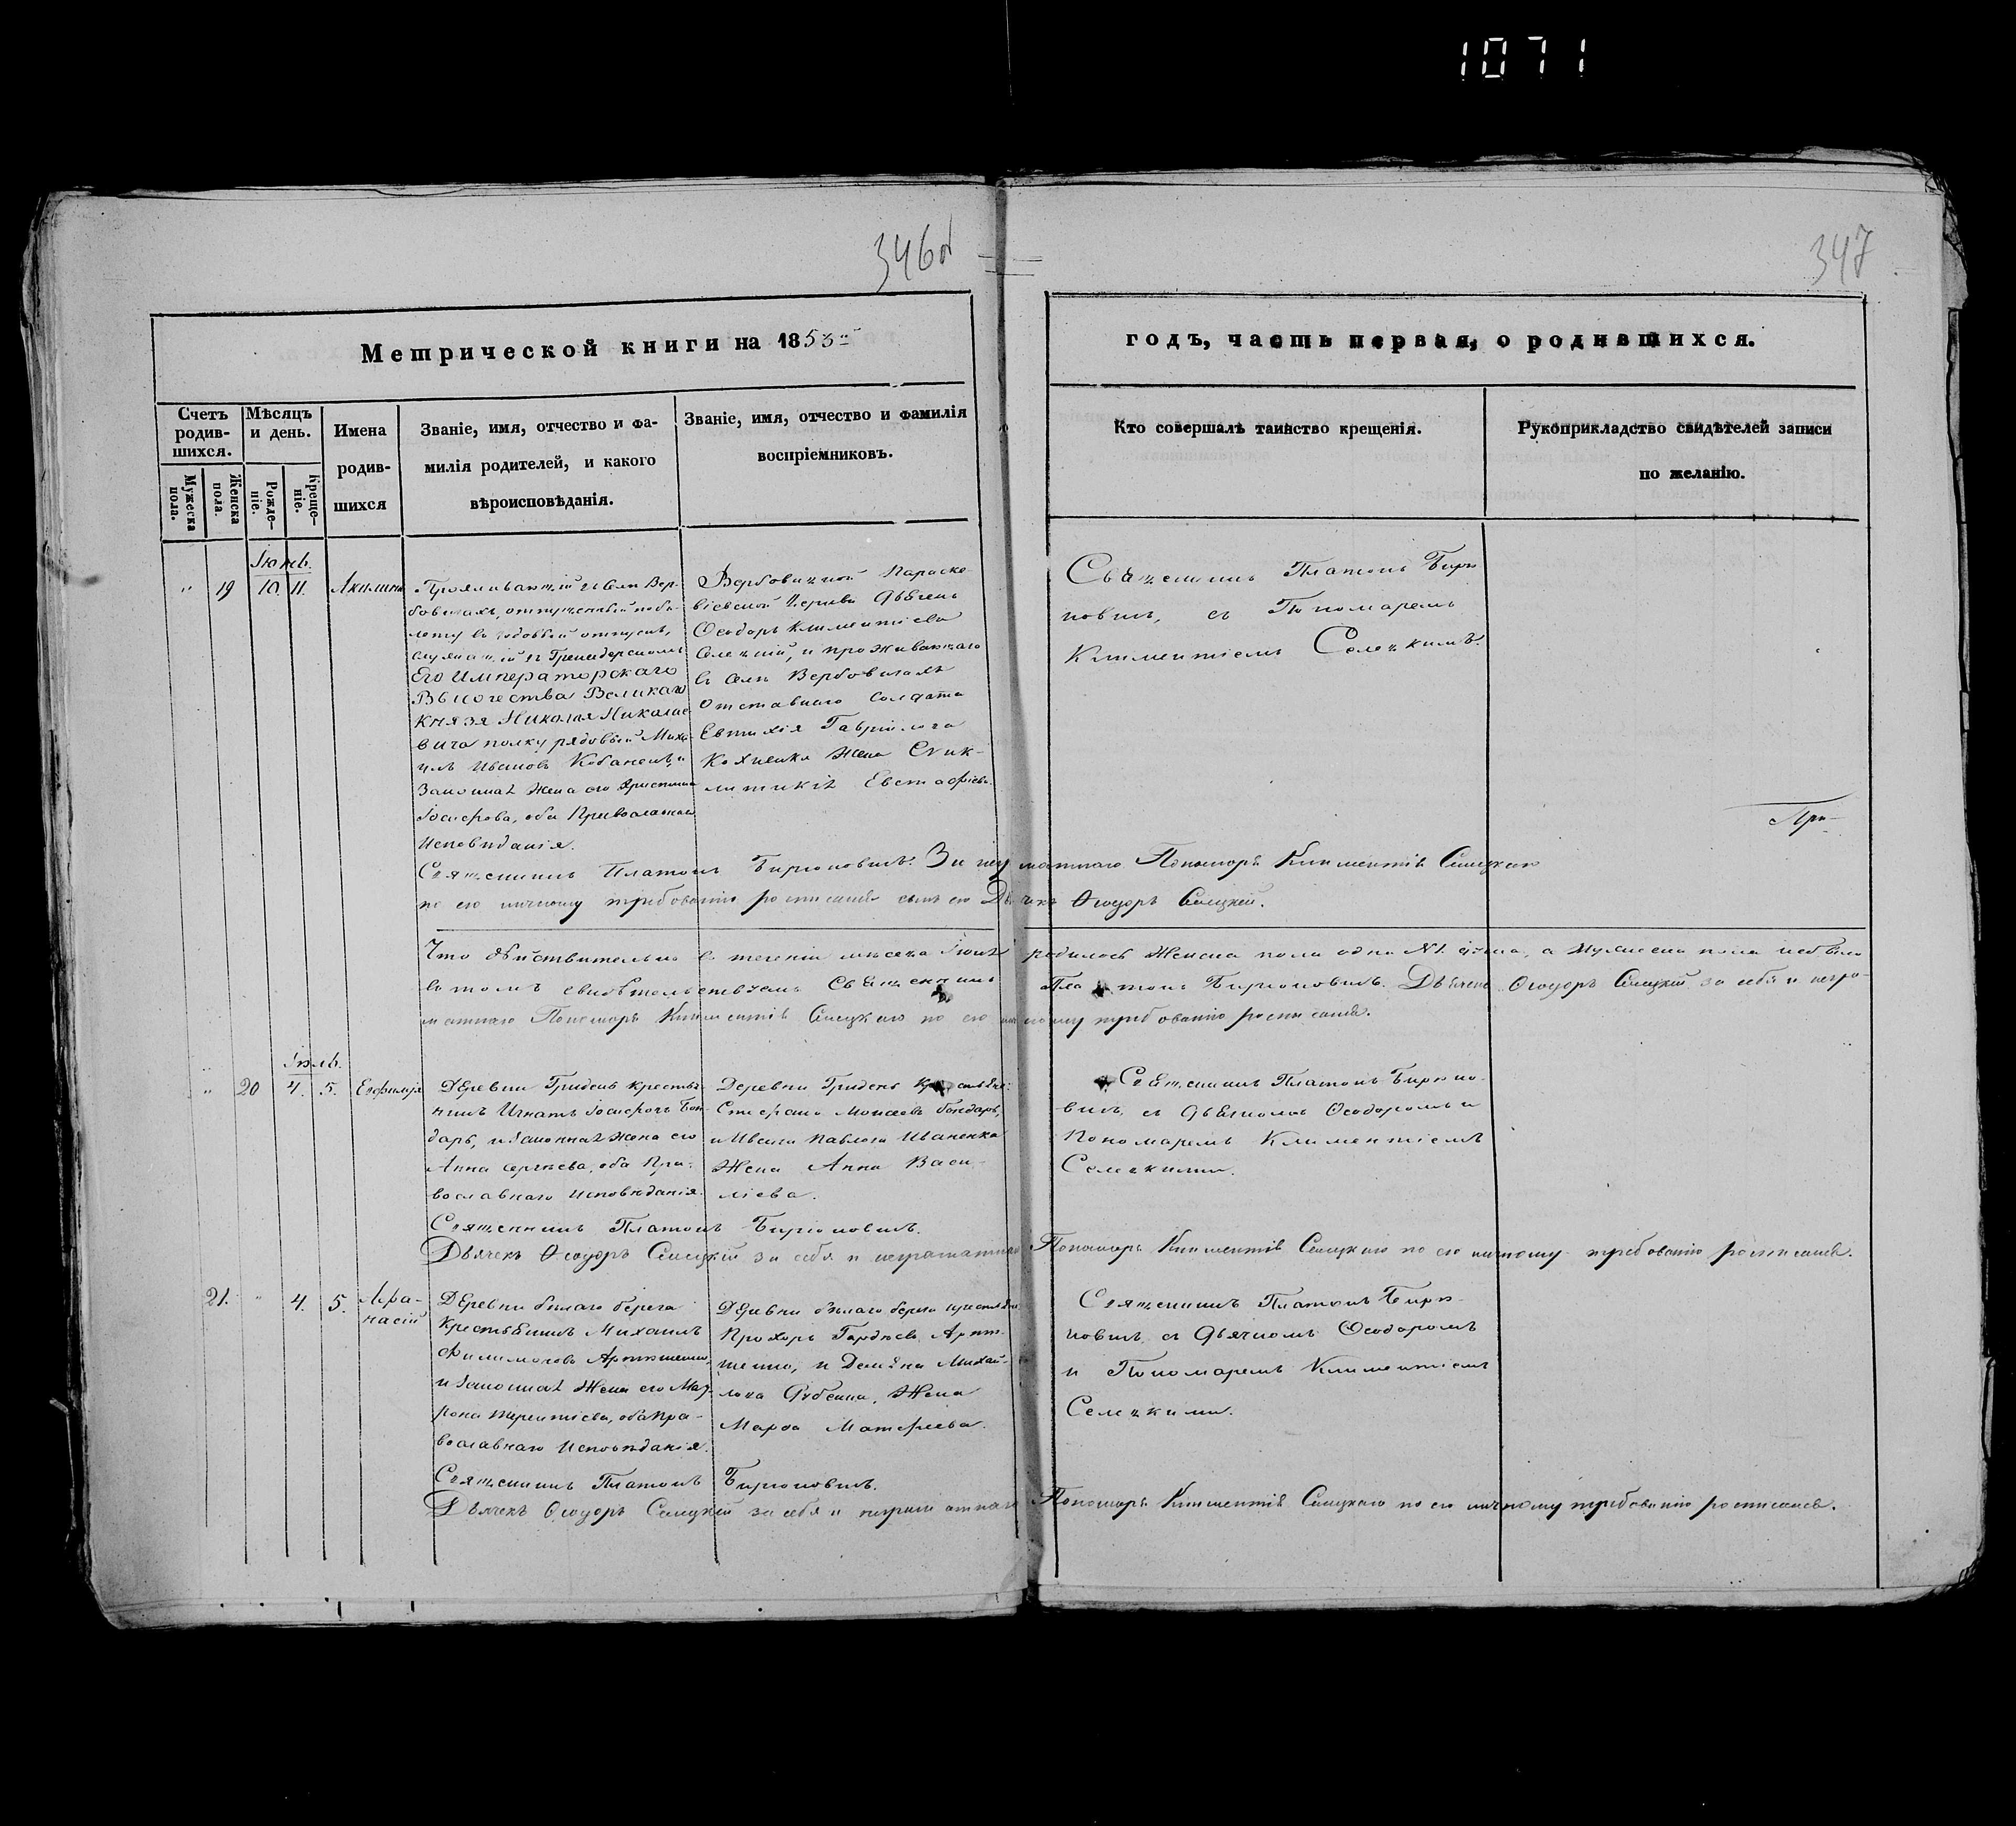 1071
346об
347
Метрической книги на 1853й
годъ, часть первая, о родившихся.
Счетъ родив-шихся.
Мѣсяцъ и день.
Имена родив-шихся
Званіе, имя, отчество и фа-
милія родителей, и какого
вѣроисповѣданія.
Званіе, имя, отчество и фамилія
воспріемниковъ.
Кто совершалъ таинство крещенія.
Рукоприкладство свидѣтелей записи
по желанію.
Мужеска пола.
Женска пола.
Рожде-ніе.
Креще-ніе.
Іюнь.
" 19 10 11. Акилина
Проживающій въ селѣ Вер-
бовичахъ, отпущенный по би-
лету въ годовой отпускъ,
служащій въ Гренадерскомъ
Его Императорскаго
Высочества Великаго
Князя Николая Николае
вича полку рядовый Миха
илъ Ивановъ Кобанецъ, и
Законная жена его Христина
Іосифова, оба Православнаго
Исповѣданія.
Вербовицкой Параске-
віевской Церкви Дьячекъ
Ѳеодоръ Климентіевъ
Селецкій, и проживающаго
въ селѣ Вербовичахъ
отставнаго солдата
Евтихія Гавріилова
жена
Евстафіева.
Священникъ Платонъ Бирю
ковичъ, съ Пономаремъ
Климентіемъ Селецкимъ.
При-
Священникъ Платонъ Бирюковичъ. За неграмотнаго Пономаря Климентія Селецкаго
по его личному требованію росписался сынъ его Дьячекъ Ѳеодоръ Селецкій.
Что дѣйствительно въ теченіи мѣсяца Іюня родилось Женска пола одна №1. душа, а Мужеска пола небыло
въ томъ свидѣтельствуемъ Священникъ Платонъ Бирюковичъ. Дьячекъ Ѳеодоръ Селецкій за себя и негра-
мотнаго Пономаря Климентія Селецкаго по его личному требованію росписался.
Іюль.
" 20 4. 5. Евфимія
Деревни Гридекъ крестья
нинъ Игнатъ Іосифовъ Бон
даръ, и Законная жена его
Анна Сергѣева, оба Пра-
вославнаго Исповѣданія.
Деревни Гридекъ крестьяне:
Стефанъ Моисеевъ Бондарь,
и Ивана Павлова Иваненка
Жена Анна Васи-
ліева.
Священникъ Платонъ Бирюко-
вичъ, съ Дьячкомъ Ѳеодоромъ и
Пономаремъ Климентіемъ
Селецкими.
Священникъ Платонъ Бирюковичъ.
Дьячекъ Ѳеодоръ Селецкій за себя и неграмотнаго Пономаря Климентія Селецкаго по его личному требованію росписался.
21. " 4. 5. Афа-
насій
Деревни бѣлаго берега
Крестьянинъ Михаилъ
Филимоновъ
и Законная Жена его Мат
рона Терентіева, оба Пра-
вославнаго Исповѣданія.
Деревни бѣлаго берега крестьяне
Прохоръ Гордѣевъ
и Демяна Михай-
лова Жена
Марѳа Матфеева.
Священникъ Платонъ Бирю-
ковичъ, съ Дьячкомъ Ѳеодоромъ
и Пономаремъ Климентіемъ
Селецкими.
Священникъ Платонъ Бирюковичъ.
Дьячекъ Ѳеодоръ Селецкій за себя и неграмотнаго Пономаря Климентія Селецкаго по его личному требованію росписался.